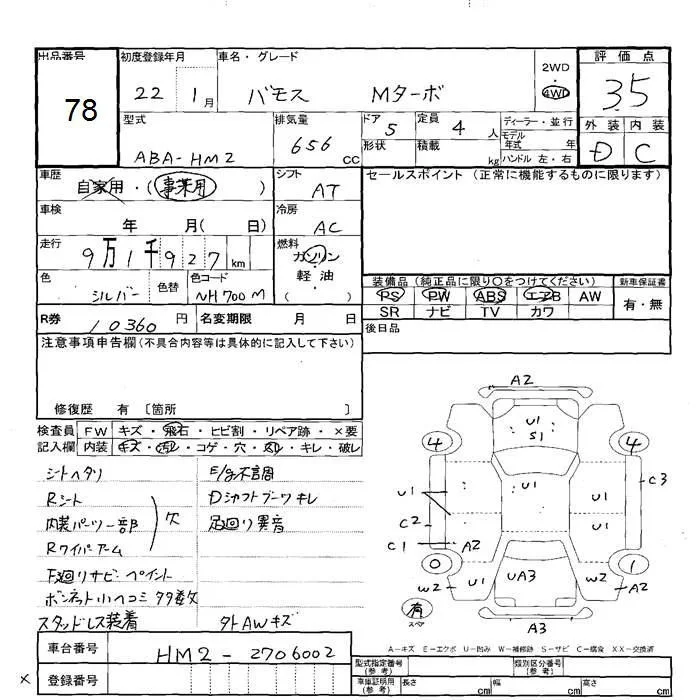 出品番号 初度登録年月 車名・グレード 評価点
78
22 1月 バモス Mターボ
2WD・4WD
3.5
型式 排気量 ドア 5 定員 4人 ディーラー・並行
ABA-HM2 656cc 形状 積載 kg モデル年式 年
ハンドル 左・右
外装 内装
D C
車歴 自家用・(事業用)
シフト AT
セールスポイント (正常に機能するものに限ります)
車検 年 月(日)
冷房 AC
走行 9万1千927km
燃料 ガソリン 軽油 ( )
色 シルバー 色替 色コード NH700M
装備品(純正品に限り○をつけてください) 新車保証書
PS PW ABS エアB AW 有・無
SR ナビ TV カワ
R券 10360円 名変期限 月 日
後日品
注意事項申告欄(不具合内容等は具体的に記入して下さい)
修復歴 有 〔箇所 〕
検査員 FW キズ・飛石・ヒビ割・リペア跡・×要
記入欄 内装 キズ・汚レ・コゲ・穴・スレ・キレ・破レ
シートヘタリ E/g不調
Rシート Dシャフトブーツキレ
内装パーツ一部 欠 足回り異音
Rワイパーアーム
下廻りサビ・ペイント
ボンネット小ヘコミ タタ数欠
スタッドレス装着 タト AWキズ
A2
U1
S1
4 4
C3
U1 U1
C2 U1
C1 A2
0 1
W2 U1 UA3 W2 A2
有
スペア
A3
A-キズ E-エクボ U-凹み W-補修跡 S-サビ C-腐食 XX-交換済
車台番号 HM2-2706002
× 登録番号
型式指定番号(参考) 類別区分番号(参考)
車庫証明用(参考) 長さ cm 幅 cm 高さ cm